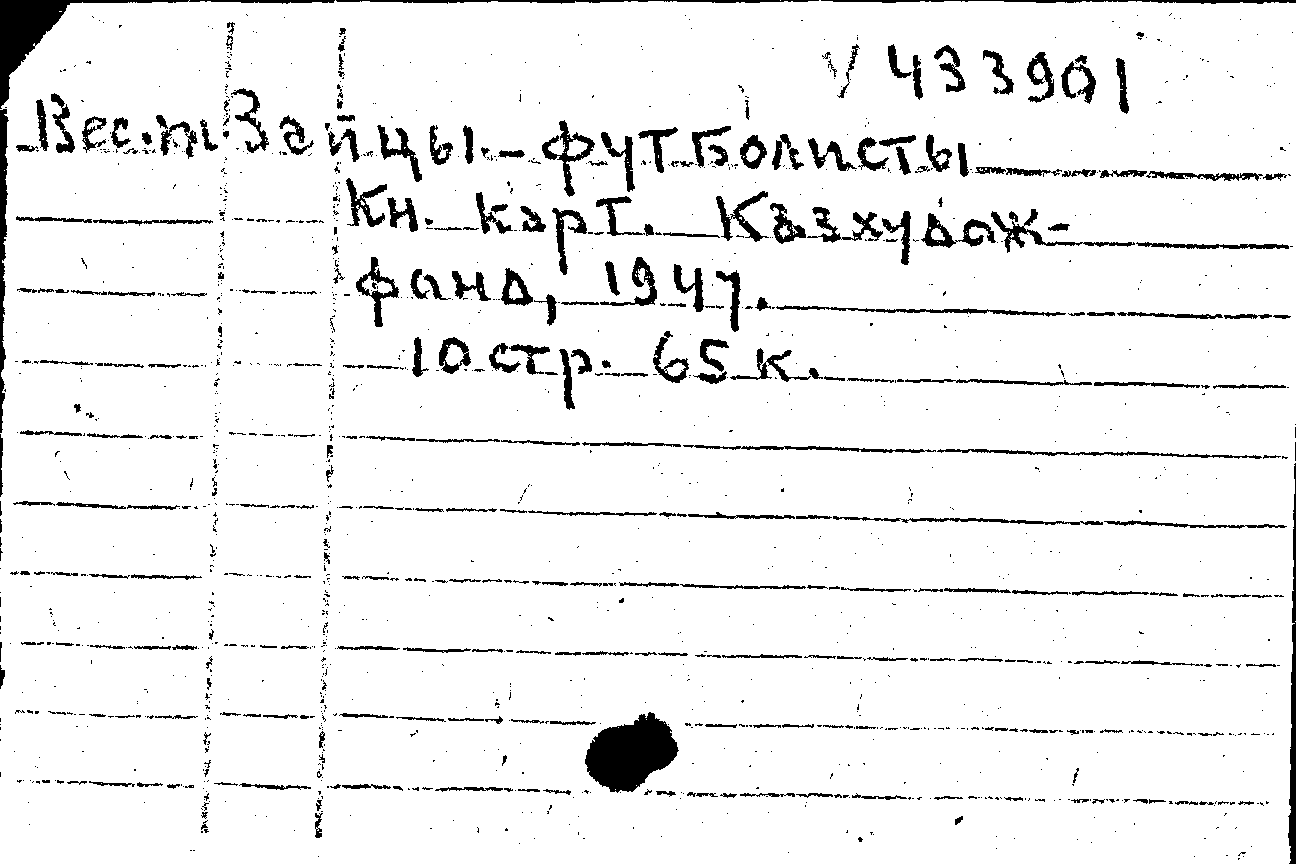 V 433901
Зайцы-футболисты
Кн. карт. Казхудож-
фонд, 1947.
10 стр. 65 к.